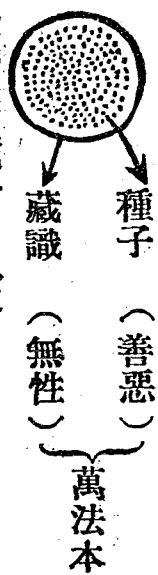 種子（善惡）
藏識（無性）
萬法本